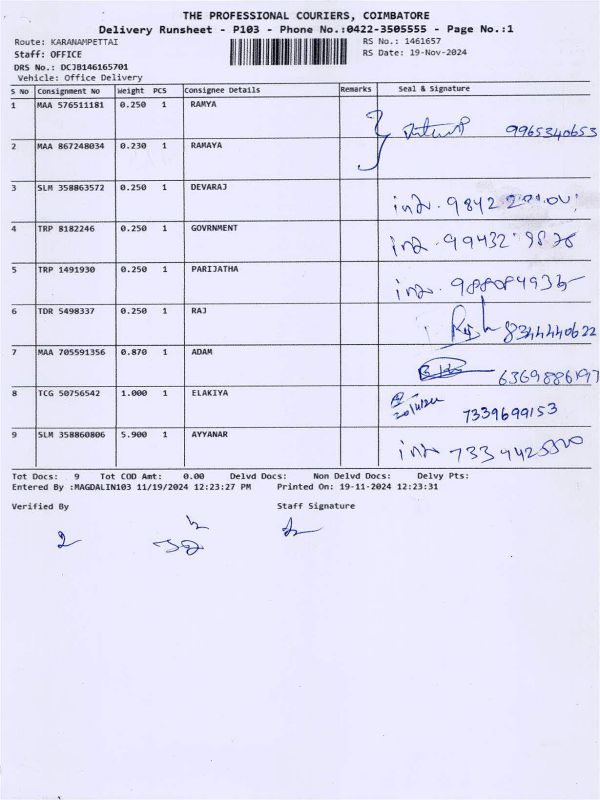 THE PROFESSIONAL COURIERS, COIMBATORE
Delivery Runsheet - P103 - Phone No.:0422-3505555 - Page No.:1
Route: KARANAMPETTAI RS No.: 1461657
Staff: OFFICE RS Date: 19-Nov-2024
DRS No.: DCJB146165701
Vehicle: Office Delivery
S No Consignment No Weight PCS Consignee Details Remarks Seal & Signature
1 MAA 576511181 0.250 1 RAMYA
9965340653
2 MAA 867248034 0.230 1 RAMAYA
3 SLM 358863572 0.250 1 DEVARAJ
9842
4 TRP 8182246 0.250 1 GOVRNMENT
99432
5 TRP 1491930 0.250 1 PARIJATHA
6 TDR 5498337 0.250 1 RAJ
8344440622
7 MAA 705591356 0.870 1 ADAM
6369886197
8 TCG 50756542 1.000 1 ELAKIYA
7339699153
9 SLM 358860806 5.900 1 AYYANAR
Tot Docs: 9 Tot COD Amt: 0.00 Delvd Docs: Non Delvd Docs: Delvy Pts:
Entered By :MAGDALIN103 11/19/2024 12:23:27 PM Printed On: 19-11-2024 12:23:31
Verified By Staff Signature